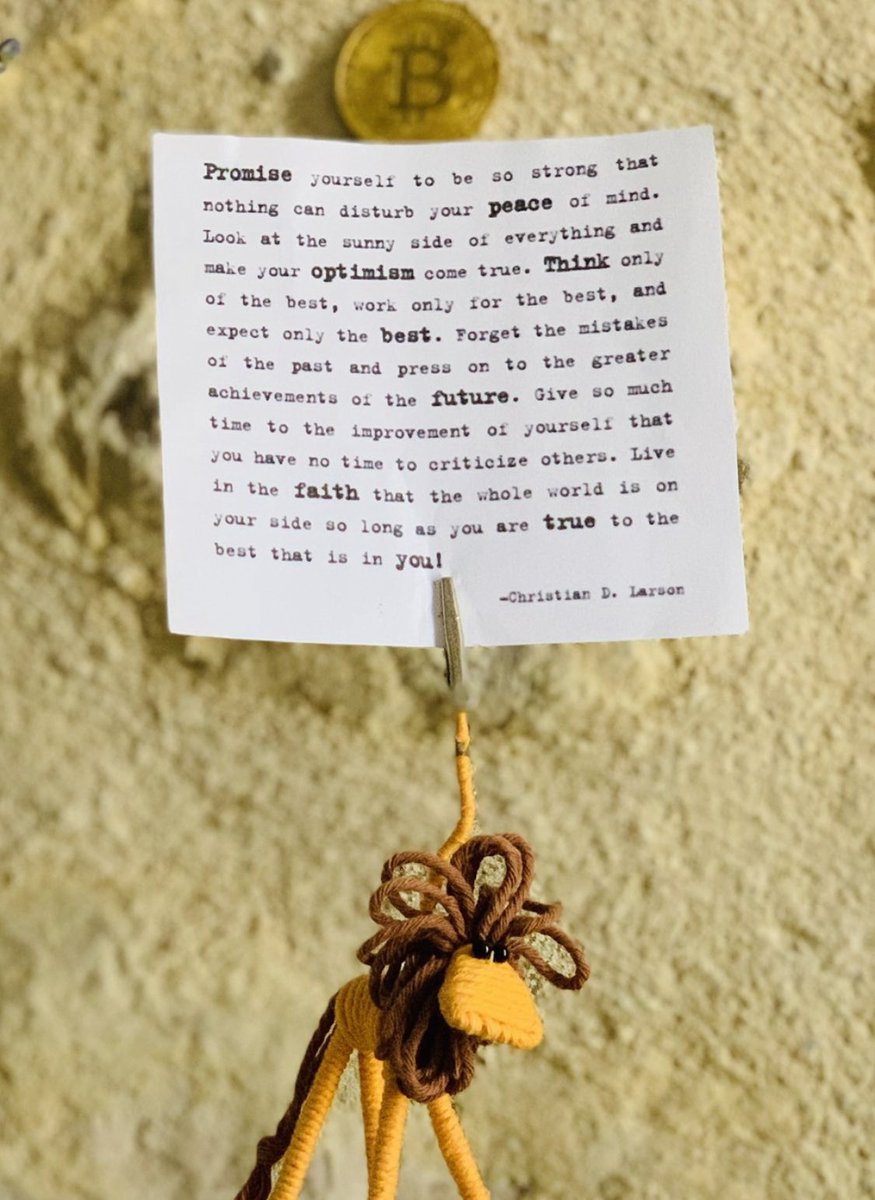 Promise yourself to be so strong that
nothing can disturb your peace of mind.
Look at the sunny side of everything and
make your optimism come true. Think only
of the best, work only for the best, and
expect only the best. Forget the mistakes
of the past and press on to the greater
achievements of the future. Give so much
time to the improvement of yourself that
you have no time to criticize others. Live
in the faith that the whole world is on
your side so long as you are true to the
best that is in you!
-Christian D. Larson